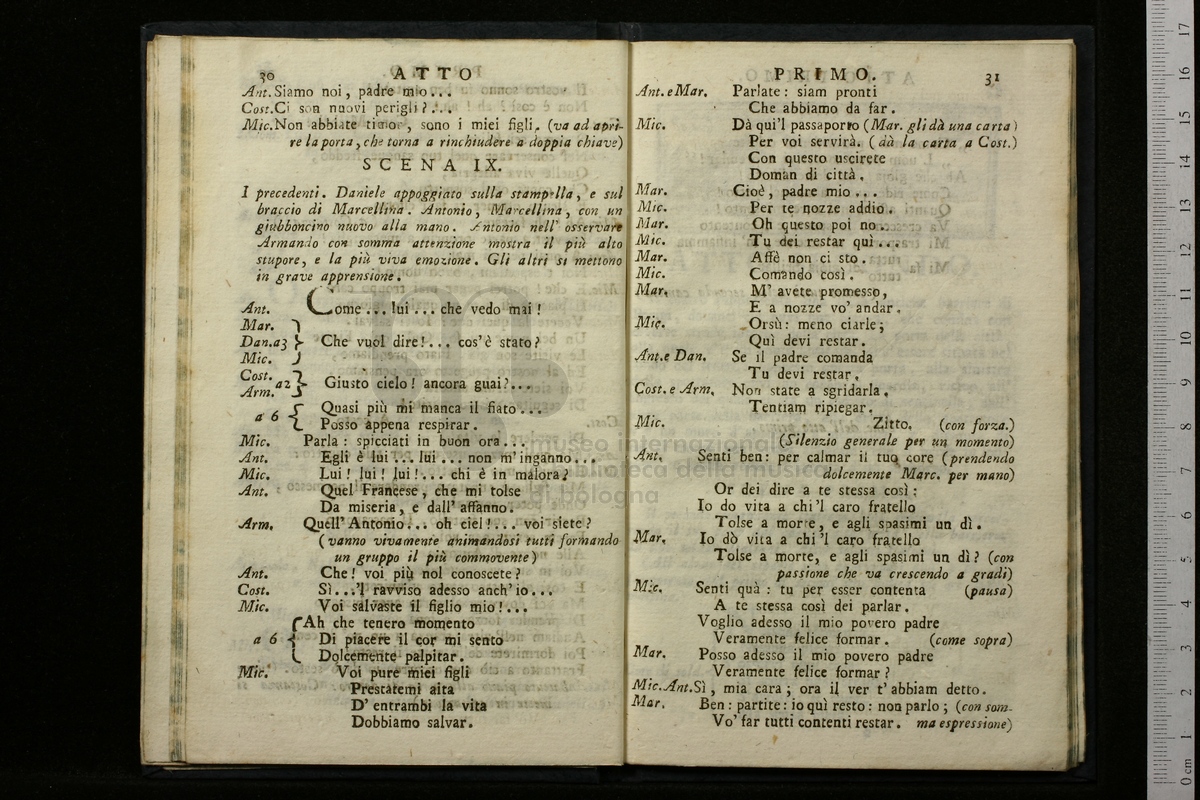 30
ATTO
Ant. Siamo noi, padre mio...
Cost. Ci son nuovi perigli?....
Mic. Non abbiate timor, sono i miei figli. (va ad apri-
re la porta, che torna a rinchiudere a doppia chiave)
SCENA IX.
I precedenti. Daniele appoggiato sulla stampella, e sul
braccio di Marcellina. Antonio, Marcellina, con un
giubboncino nuovo alla mano. Antonio nell' osservare
Armando con somma attenzione mostra il più alto
stupore, e la più viva emozione. Gli altri si mettono
in grave apprensione.
Ant. Come... lui... che vedo mai!
Mar.
Dan. a3 } Che vuol dire!... cos'è stato?
Mic.
Cost. a2 } Giusto cielo! ancora guai?...
Arm.
a 6 { Quasi più mi manca il fiato...
Posso appena respirar.
Mic. Parla: spicciati in buon ora...
Ant. Egli è lui... lui... non m'inganno...
Mic. Lui! lui! lui!... chi è in malora?
Ant. Quel Francese, che mi tolse
Da miseria, e dall' affanno.
Arm. Quell' Antonio... oh ciel!... voi siete?
(vanno vivamente animandosi tutti formando
un gruppo il più commovente)
Ant. Che! voi più nol conoscete?
Cost. Sì...'l ravviso adesso anch'io...
Mic. Voi salvaste il figlio mio!...
Ah che tenero momento
a 6 { Di piacere il cor mi sento
Dolcemente palpitar.
Mic. Voi pure miei figli
Prestatemi aita
D' entrambi la vita
Dobbiamo salvar.
PRIMO.
31
Ant. e Mar. Parlate: siam pronti
Che abbiamo da far.
Mic. Dà qui'l passaporto (Mar. gli dà una carta)
Per voi servirà. (dà la carta a Cost.)
Con questo uscirete
Doman di città.
Mar. Cioè, padre mio...
Mic. Per te nozze addio.
Mar. Oh questo poi no...
Mic. Tu dei restar quì...
Mar. Affè non ci sto.
Mic. Comando così.
Mar. M' avete promesso,
E a nozze vo' andar.
Mic. Orsù: meno ciarle;
Quì devi restar.
Ant. e Dan. Se il padre comanda
Tu devi restar.
Cost. e Arm. Non state a sgridarla,
Tentiam ripiegar.
Mic. Zitto. (con forza.)
(Silenzio generale per un momento)
Ant. Senti ben: per calmar il tuo core (prendendo
dolcemente Marc. per mano)
Or dei dire a te stessa così:
Io do vita a chi 'l caro fratello
Tolse a morte, e agli spasimi un dì.
Mar. Io dò vita a chi 'l caro fratello
Tolse a morte, e agli spasimi un dì? (con
passione che va crescendo a gradi)
Mic. Senti quà: tu per esser contenta (pausa)
A te stessa così dei parlar.
Voglio adesso il mio povero padre
Veramente felice formar. (come sopra)
Mar. Posso adesso il mio povero padre
Veramente felice formar?
Mic. Ant. Sì, mia cara; ora il ver t'abbiam detto.
Mar. Ben: partite: io quì resto: non parlo; (con som-
Vo' far tutti contenti restar. ma espressione)
museo internazionale
biblioteca della musica
di bologna
0 cm 1 2 3 4 5 6 7 8 9 10 11 12 13 14 15 16 17